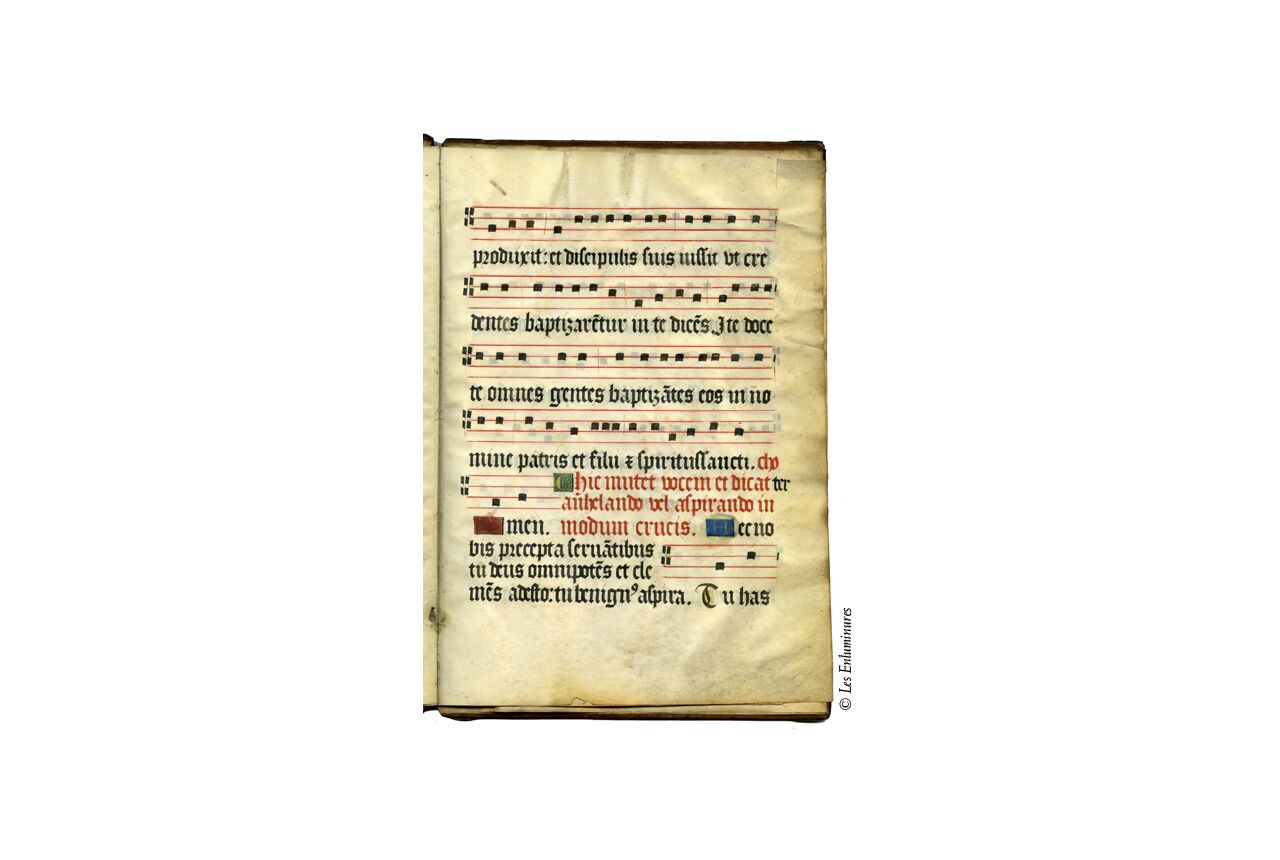 produxit: et discipulis suis iussit vt cre
dentes baptizarẽtur in te dicẽs. Ite doce
te omnes gentes baptizãtes eos in no
mine patris et filii ⁊ spiritussancti. cho
hic mutet vocem et dicat ter
anhelando vel aspirando in
men. modum crucis. Hec no
bis precepta seruãtibus
tu deus omnipotẽs et cle
mẽs adesto: tu benignꝰ aspira. Tu has
© Les Enluminures